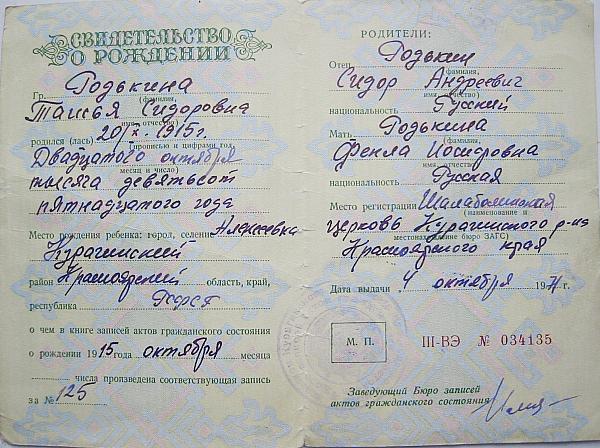 СВИДЕТЕЛЬСТВО
О РОЖДЕНИИ
Гр. Годькина
(фамилия,
Татья Сидоровна
имя, отчество)
родился (лась) 20/X - 1915г.
прописью и цифрами год,
Двадцатого октября
месяц и число)
тысяча девятьсот
пятнадцатого года
Место рождения ребенка: город, селение Алексеевка
Курагинский
район Красноярский область, край,
республика РСФСР
о чем в книге записей актов гражданского состояния
о рождении 1915 года октября месяца
числа произведена соответствующая запись
за № 125
РОДИТЕЛИ:
Отец Годькин
фамилия,
Сидор Андреевич
имя, отчество)
национальность Русский
Мать Годькина
фамилия,
Фекла Иосифовна
имя, отчество)
национальность Русская
Место регистрации Шалаболинская
(наименование и
церковь Курагинского р-на
местонахождение бюро ЗАГС)
Красноярского края
Дата выдачи 4 октября 1971 г.
М. П.
III-ВЭ № 034135
Заведующий Бюро записей
актов гражданского состояния